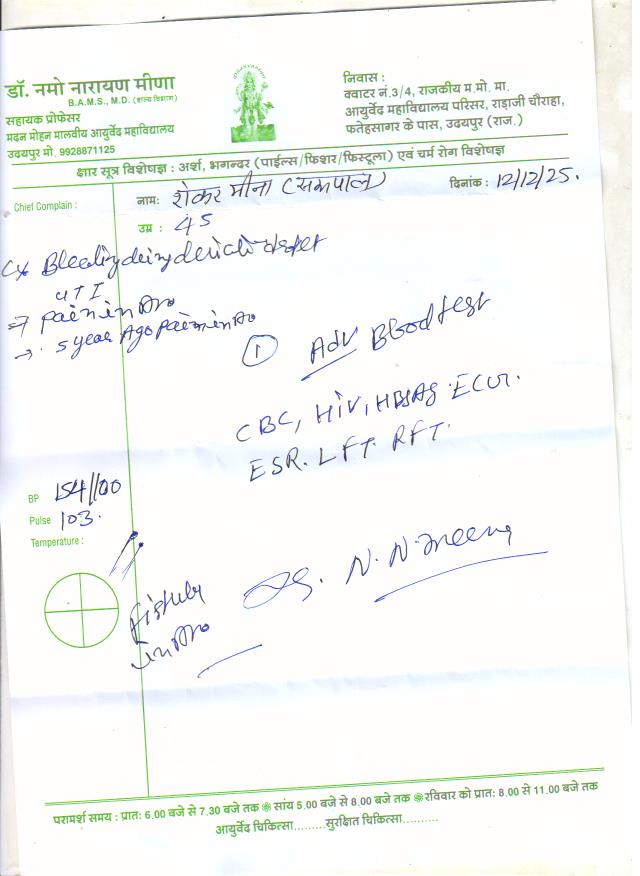 डॉ. नमो नारायण मीणा
B.A.M.S., M.D. (शल्य विज्ञान)
सहायक प्रोफेसर
मदन मोहन मालवीय आयुर्वेद महाविद्यालय
उदयपुर मो. 9928871125
निवास :
क्वाटर नं.3/4, राजकीय म.मो. मा.
आयुर्वेद महाविद्यालय परिसर, राड़ाजी चौराहा,
फतेहसागर के पास, उदयपुर (राज.)
क्षार सूत्र विशेषज्ञ : अर्श, भगन्दर (पाईल्स/फिशर/फिस्टूला) एवं चर्म रोग विशेषज्ञ
Chief Complain :
नाम: शेकर मीना (सकपाल)
दिनांक : 12/12/25.
उम्र : 45
Bleeding
UTI
→ pain in Ano
→ 5 year Ago pain in Ano
① Adv Blood test
CBC, HIV, HBsAg.
ESR. LFT. RFT.
BP 154/100
Pulse 103.
Temperature :
N. N. Meena
fistula
in Ano
परामर्श समय : प्रातः 6.00 बजे से 7.30 बजे तक ❋ सांय 5.00 बजे से 8.00 बजे तक ❋ रविवार को प्रातः 8.00 से 11.00 बजे तक
आयुर्वेद चिकित्सा.........सुरक्षित चिकित्सा..........